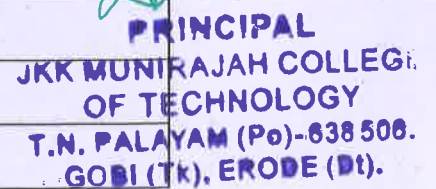 PRINCIPAL
JKK MUNIRAJAH COLLEGE
OF TECHNOLOGY
T.N. PALAYAM (Po)-638 506.
GOBI (Tk), ERODE (Dt).